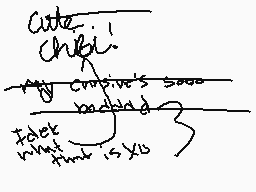 Cute.
Chibi!
my cursive's sooo
baddd
Idek
what
that is XD